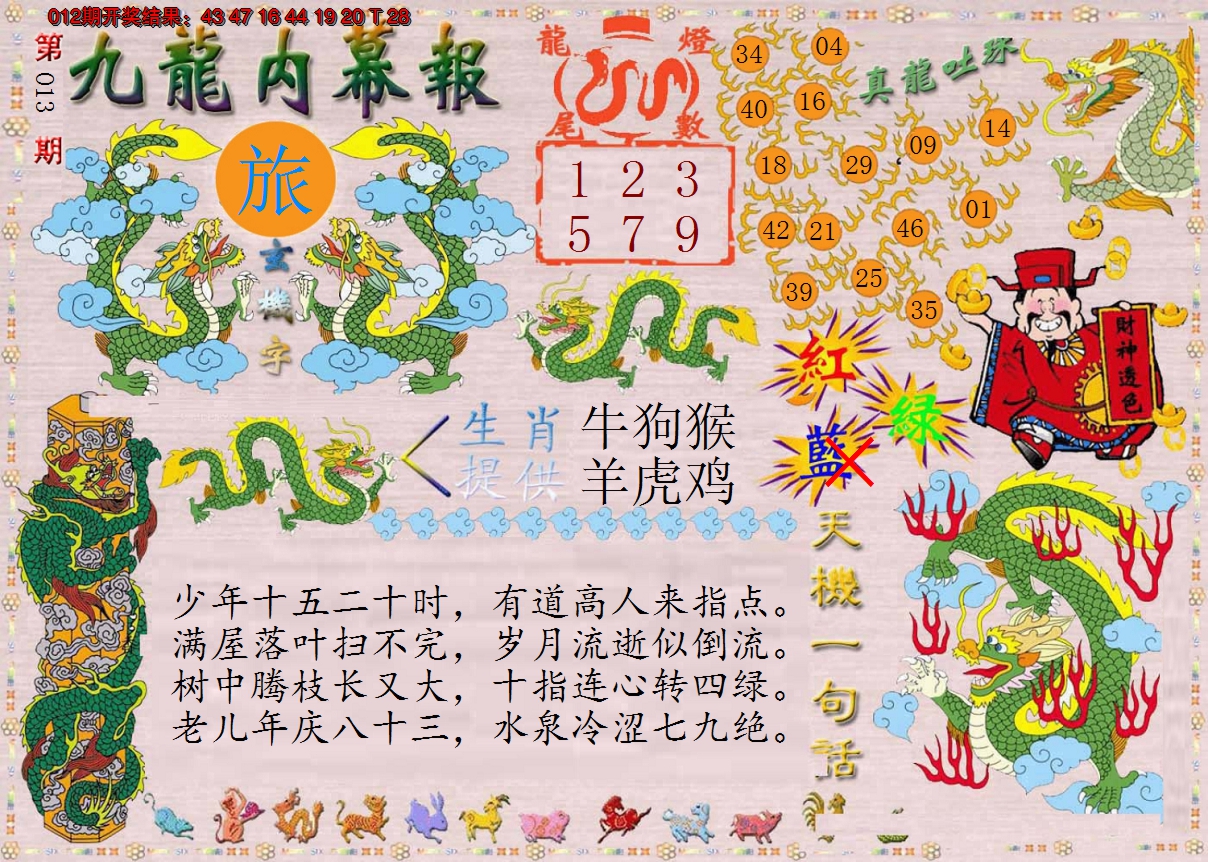 012期开奖结果：43 47 16 44 19 20 T 28
第013期
九龍内幕報
旅
玄機字
龍燈
尾數
1 2 3
5 7 9
真龍吐珠
34 04
40 16
18 29 09 14
42 21 46 01
39 25 35
紅
綠
藍
財神透色
生肖提供
牛狗猴
羊虎鸡
少年十五二十时，有道高人来指点。
满屋落叶扫不完，岁月流逝似倒流。
树中腾枝长又大，十指连心转四绿。
老儿年庆八十三，水泉冷涩七九绝。
天機一句话